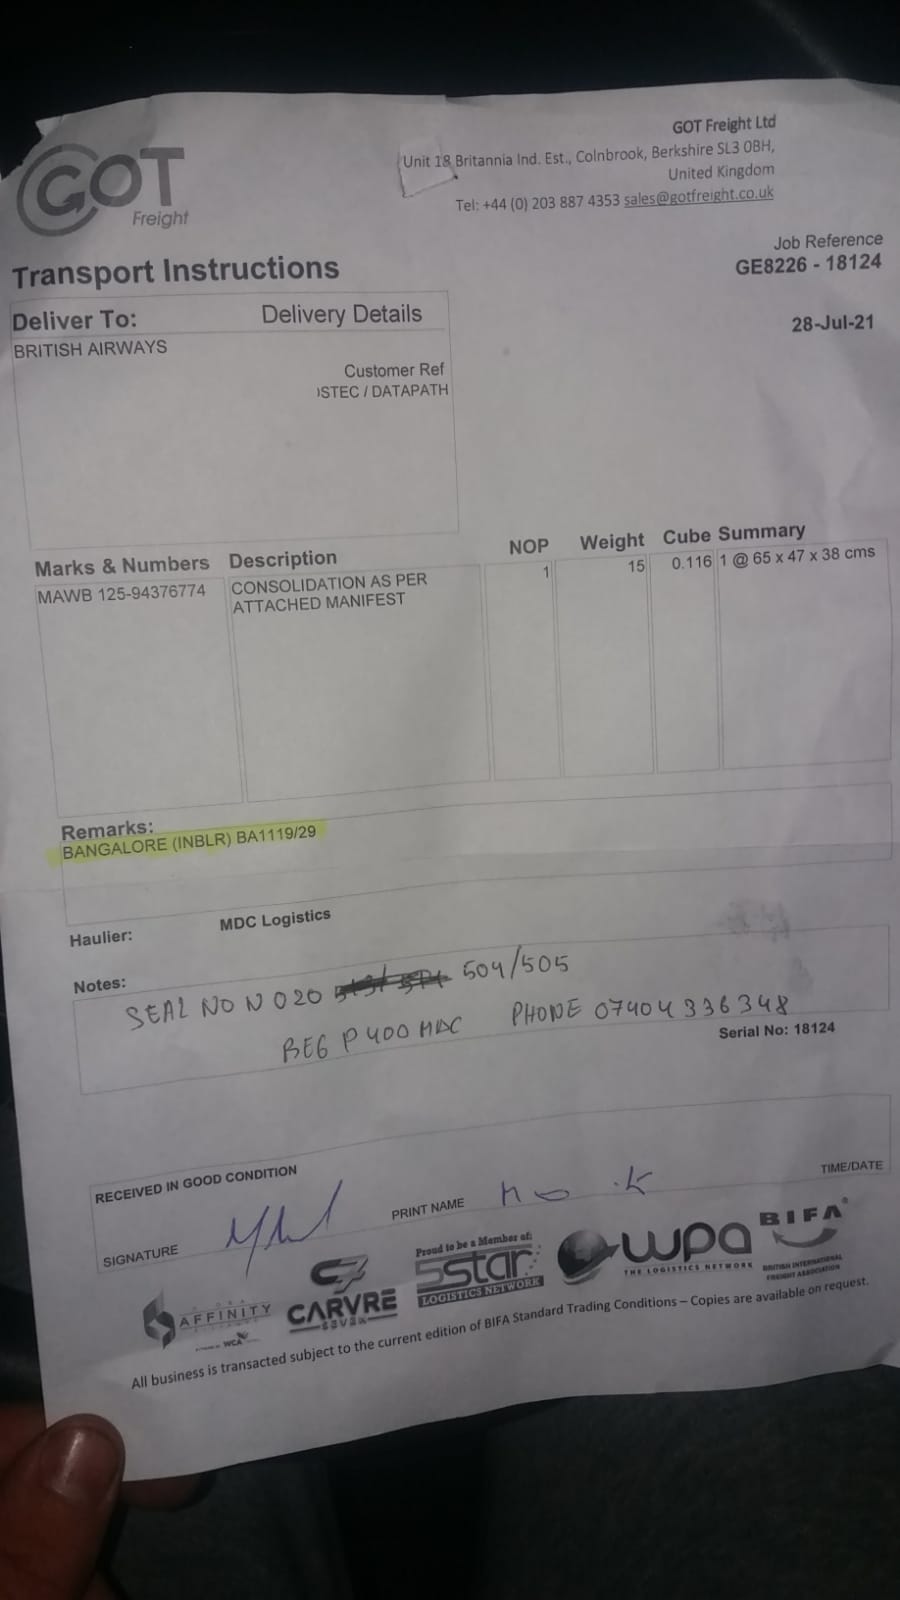 GOT
Freight
GOT Freight Ltd
Unit 18 Britannia Ind. Est., Colnbrook, Berkshire SL3 0BH,
United Kingdom
Tel: +44 (0) 203 887 4353 sales@gotfreight.co.uk
Job Reference
GE8226 - 18124
Transport Instructions
28-Jul-21
Deliver To: Delivery Details
BRITISH AIRWAYS
Customer Ref
STEC / DATAPATH
Marks & Numbers Description NOP Weight Cube Summary
MAWB 125-94376774 CONSOLIDATION AS PER 1 15 0.116 1 @ 65 x 47 x 38 cms
ATTACHED MANIFEST
Remarks:
BANGALORE (INBLR) BA1119/29
Haulier: MDC Logistics
Notes:
SEAL NO N 020 504/505
REG P400MDC PHONE 07404336348
Serial No: 18124
RECEIVED IN GOOD CONDITION
TIME/DATE
SIGNATURE
PRINT NAME
AFFINITY
WCA
CARVRE
SEVEN
Proud to be a Member of:
5star
LOGISTICS NETWORK
wpa
THE LOGISTICS NETWORK
BIFA
BRITISH INTERNATIONAL
FREIGHT ASSOCIATION
All business is transacted subject to the current edition of BIFA Standard Trading Conditions – Copies are available on request.